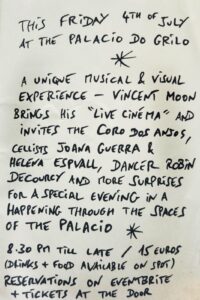 THIS FRIDAY 4TH OF JULY
AT THE PALACIO DO GRILO
A UNIQUE MUSICAL & VISUAL
EXPERIENCE – VINCENT MOON
BRINGS HIS "LIVE CINEMA" AND
INVITES THE CORO DOS ANJOS,
CELLISTS JOANA GUERRA &
HELENA ESPVALL, DANCER ROBIN
DECOURCY AND MORE SURPRISES
FOR A SPECIAL EVENING IN A
HAPPENING THROUGH THE SPACES
OF THE PALACIO
8:30 PM TILL LATE / 15 EUROS
(DRINKS + FOOD AVAILABLE ON SPOT)
RESERVATIONS ON EVENTBRITE
+ TICKETS AT THE DOOR